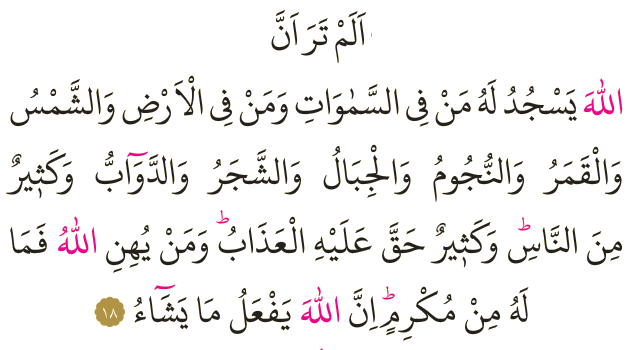 اَلَمْ تَرَ اَنَّ
اللّٰهَ يَسْجُدُ لَهُ مَنْ فِى السَّمٰوَاتِ وَمَنْ فِى الْاَرْضِ وَالشَّمْسُ
وَالْقَمَرُ وَالنُّجُومُ وَالْجِبَالُ وَالشَّجَرُ وَالدَّوَٓابُّ وَكَث۪يرٌ
مِنَ النَّاسِۜ وَكَث۪يرٌ حَقَّ عَلَيْهِ الْعَذَابُۜ وَمَنْ يُهِنِ اللّٰهُ فَمَا
لَهُ مِنْ مُكْرِمٍۜ اِنَّ اللّٰهَ يَفْعَلُ مَا يَشَٓاءُ ١٨